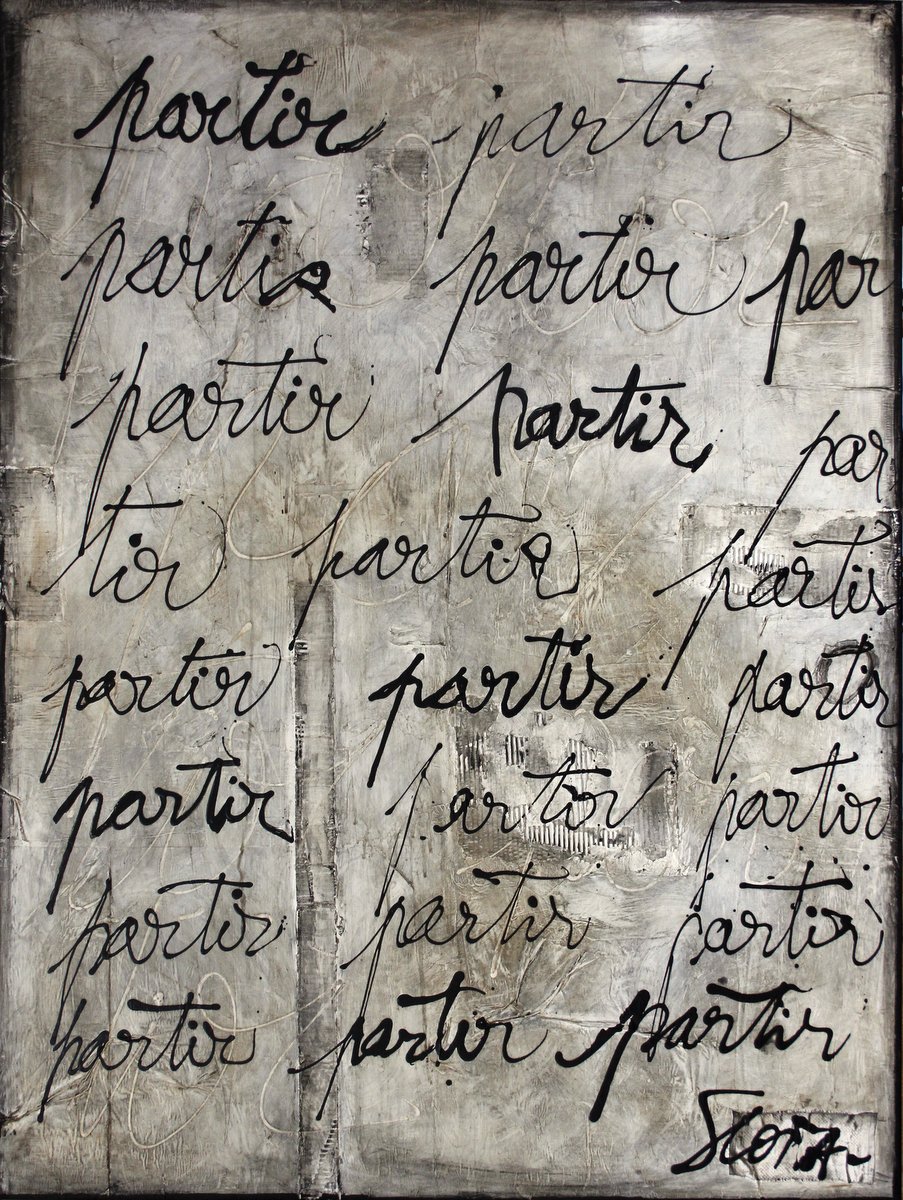 partir partir
partir partir par
partir partir par
tir partir partir
partir partir partir
partir partir partir
partir partir partir
partir partir partir